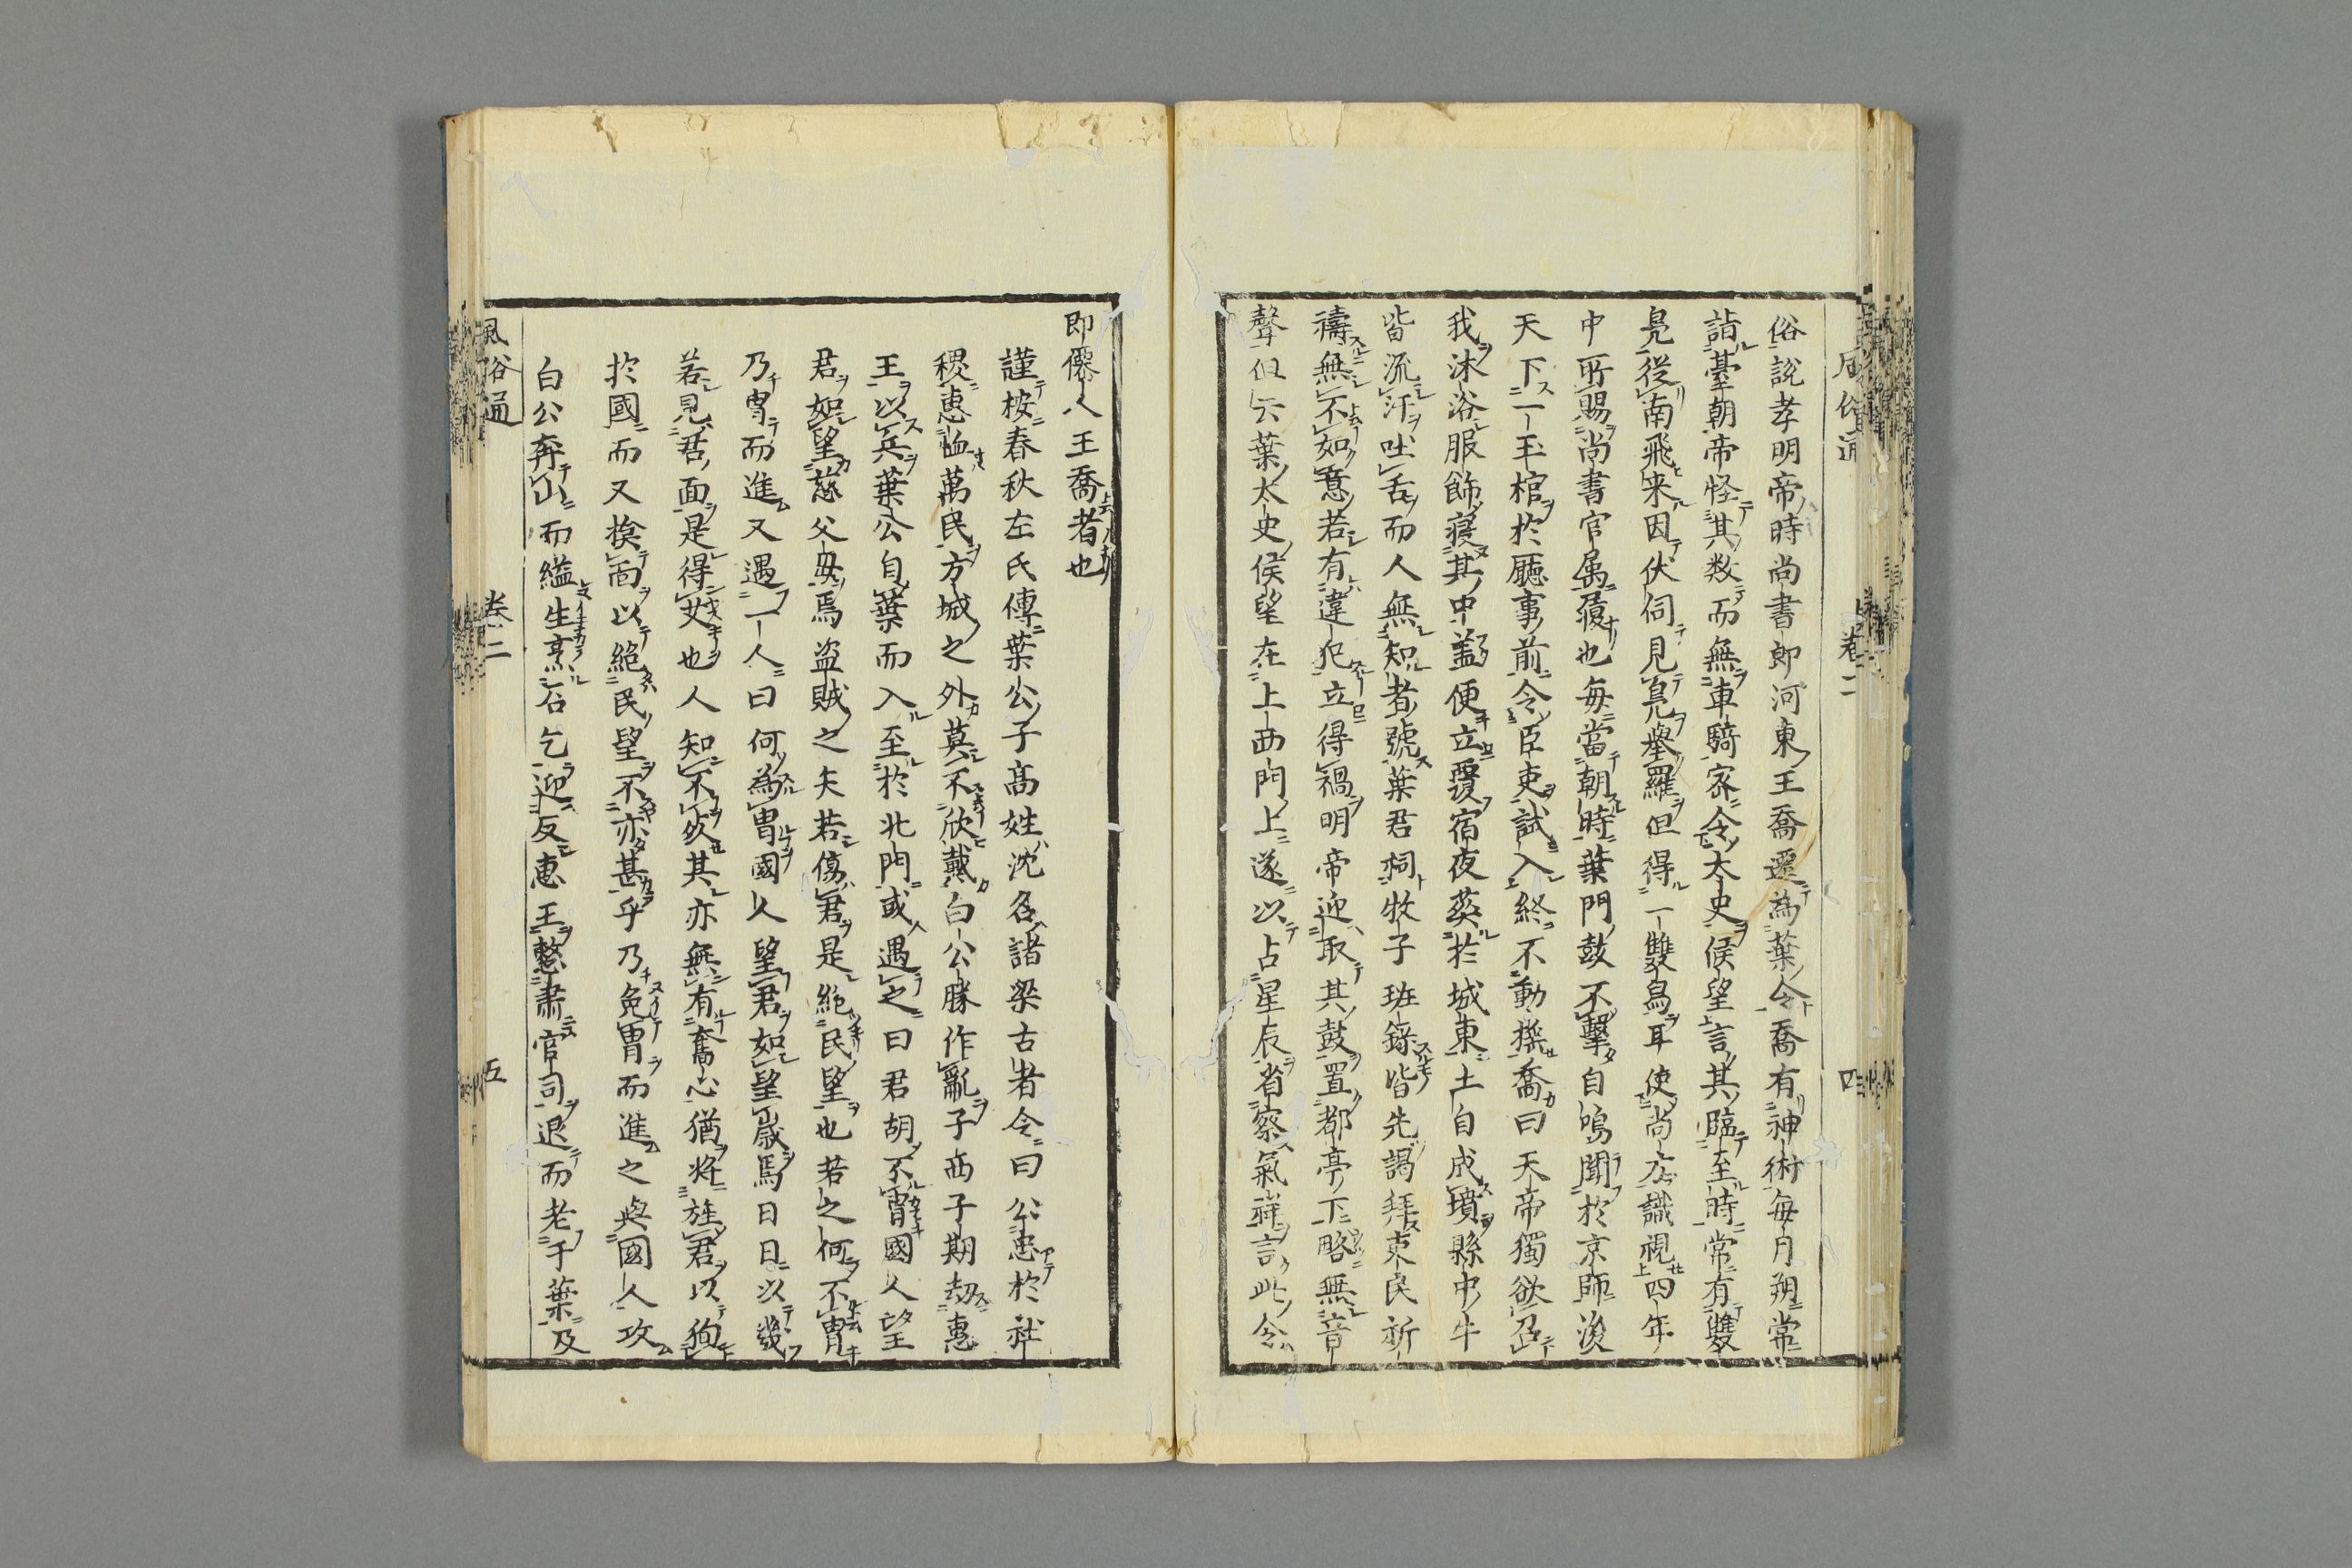 風俗通 卷二 四
俗說孝明帝時尚書郎河東王喬遷為葉令喬有神術每月朔常
詣臺朝帝怪其数而無車騎密令太史候望言其臨至時常有雙
鳧從南飛来因伏伺見鳧舉羅但得一雙舄耳使尚方識視四年
中所賜尚書官属履也每當朝時葉門鼓不擊自鳴聞於京師後
天下一玉棺於廳事前令臣吏試入終不動搖喬曰天帝獨欲召
我沐浴服飾寢其中蓋便立覆宿夜葵於城東土自成墳縣中牛
皆流汗吐舌而人無知者號葉君祠牧子班錄皆先謁拜吏民祈
禱無不如意若有違犯立得禍明帝迎取其鼓置都亭下略無音
聲但云葉太史候望在上西門上遂以占星辰省察氣祥言此令
即僊人王喬者也
謹桉春秋左氏傳葉公子髙姓沈名諸梁古者令曰公忠於社
稷惠恤萬民方城之外莫不欣戴白公勝作亂子西子期劫惠
王以兵葉公自葉而入至於北門或遇之曰君胡不冑國人望
君如望慈父母焉盗賊之矢若傷君是絶民望也若之何不冑
乃冑而進又遇一人曰何為冑國人望君如望歲焉日日以幾
若見君面是得艾也人知不死其亦無有奮心猶將旌君以徇
於國而又揜面以絶民望不亦甚乎乃免冑而進之與國人攻
白公奔山而縊生烹石乞迎反惠王整肅官司退而老于葉及
風俗通 卷二 五